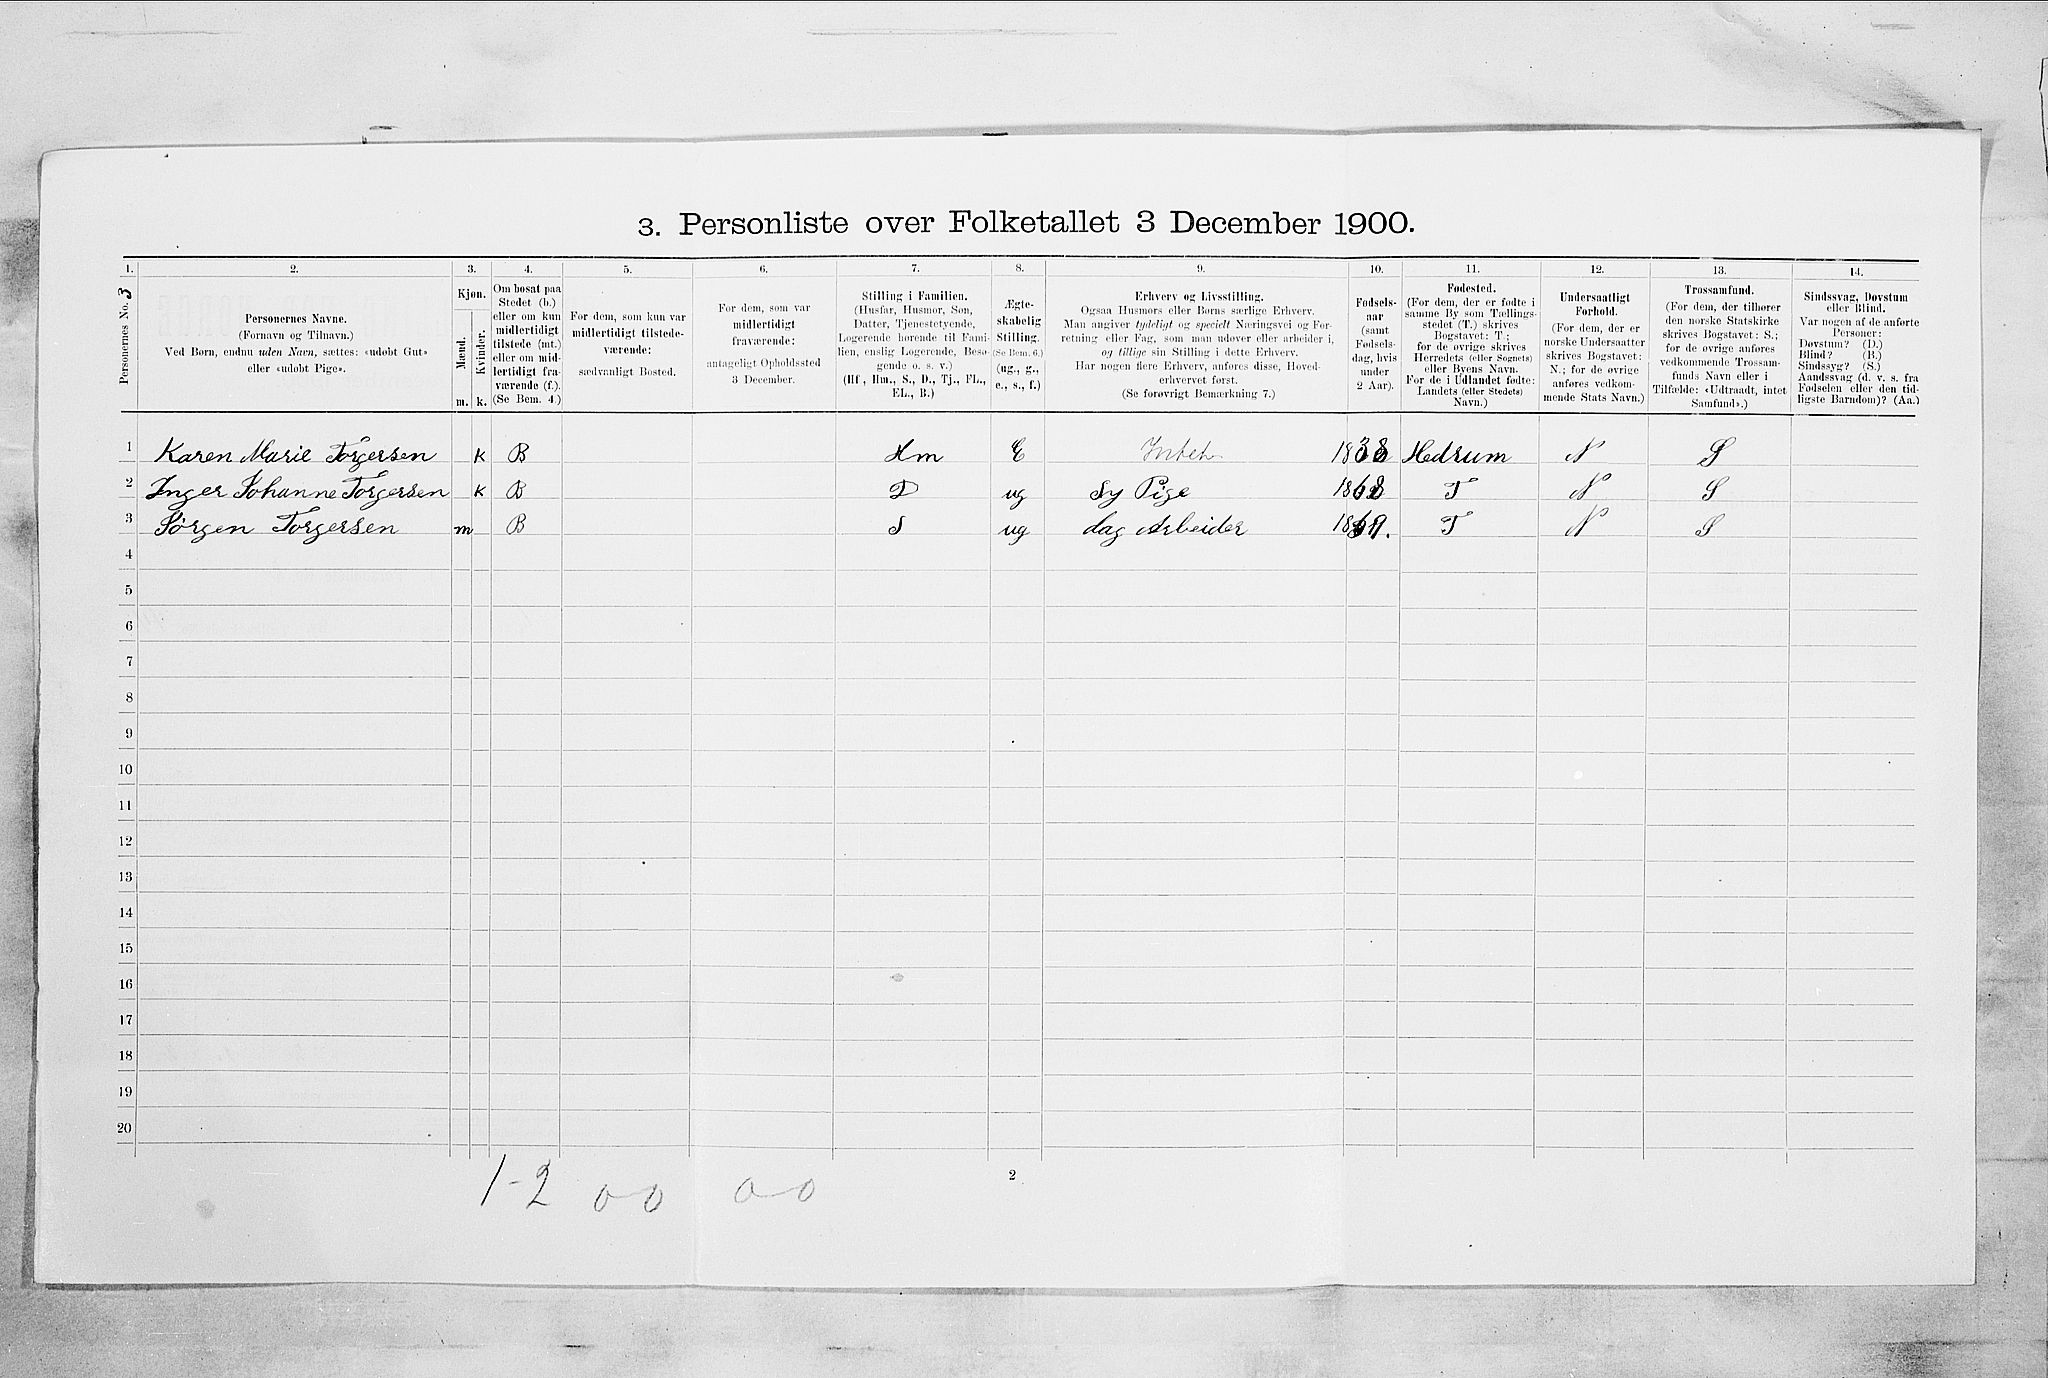 3. Personliste over Folketallet 3 December 1900.
1. 2. 3. 4. 5. 6. 7. 8. 9. 10. 11. 12. 13. 14.
Personernes No. 3
Personernes Navne.
(Fornavn og Tilnavn.)
Ved Børn, endnu uden Navn, sættes: «udøbt Gut»
eller «udøbt Pige».
Kjøn.
Mænd.
Kvinder.
m. k.
Om bosat paa
Stedet (b.)
eller om kun
midlertidigt
tilstede (mt.)
eller om mid-
lertidigt fra-
værende (f.).
(Se Bem. 4.)
For dem, som kun var
midlertidigt tilstede-
værende:
sædvanligt Bosted.
For dem, som var
midlertidigt
fraværende:
antageligt Opholdssted
3 December.
Stilling i Familien.
(Husfar, Husmor, Søn,
Datter, Tjenestetyende,
Logerende hørende til Fami-
lien, enslig Logerende, Besø-
gende o. s. v.)
(Hf., Hm., S., D., Tj., FL.,
EL., B.)
Ægte-
skabelig
Stilling.
(Se Bem. 6.)
(ug., g.,
e., s., f.)
Erhverv og Livsstilling.
Ogsaa Husmors eller Børns særlige Erhverv.
Man angiver tydeligt og specielt Næringsvei og For-
retning eller Fag, som man udøver eller arbeider i,
og tillige sin Stilling i dette Erhverv.
Har nogen flere Erhverv, anføres disse, Hoved-
erhvervet først.
(Se forøvrigt Bemærkning 7.)
Fødsels-
aar
(samt
Fødsels-
dag, hvis
under
2 Aar).
Fødested.
(For dem, der er fødte i
samme By som Tællings-
stedet (T.) skrives
Bogstavet: T;
for de øvrige skrives
Herredets (eller Sognets)
eller Byens Navn.
For de i Udlandet fødte:
Landets (eller Stedets)
Navn.)
Undersaatligt
Forhold.
(For dem, der er
norske Undersaatter
skrives Bogstavet:
N.; for de øvrige
anføres vedkom-
mende Stats Navn.)
Trossamfund.
(For dem, der tilhører
den norske Statskirke
skrives Bogstavet: S.;
for de øvrige anføres
vedkommende Trossam-
funds Navn eller i
Tilfælde: «Udtraadt, intet
Samfund».)
Sindssvag, Døvstum
eller Blind.
Var nogen af de anførte
Personer:
Døvstum? (D.)
Blind? (B.)
Sindssyg? (S.)
Aandssvag (d. v. s. fra
Fødselen eller den tid-
ligste Barndom)? (Aa.)
1 Karen Marie Torgersen k B Hm E Intet 1838 Hedrum N S
2 Inger Johanne Torgersen k B D ug Sy Pige T N S
3 Jørgen Torgersen m B S ug dag Arbeider T N S
4
5
6
7
8
9
10
11
12
13
14
15
16
17
18
19
20
2
1-2 0-0 0-0